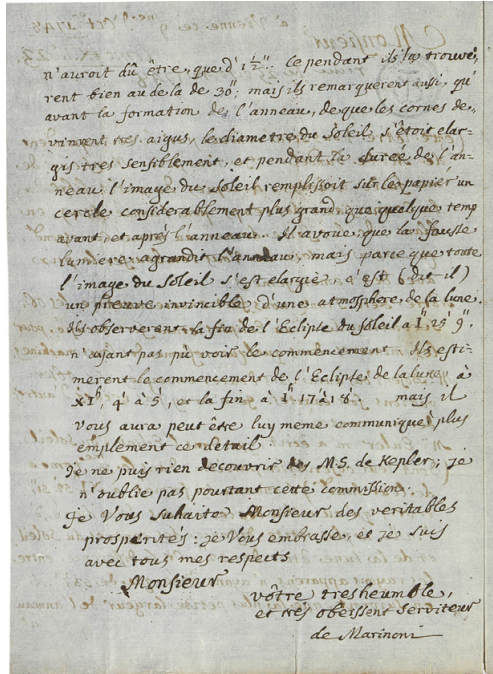 n'auroit dû être, que d'1½". Cependant ils la trouvé-
rent bien au de la de 30": mais ils remarquerent aussi, qu'
avant la formation de l'anneau, de que les cornes de-
vinrent tres aigus, le diametre du Soleil s'étoit elar-
gis tres sensiblement, et pendant la durée de l'an-
neau l'image du Soleil remplissoit sur le papier un
cercle considerablement plus grand, que quelque temp
avant et aprés l'anneau. Il avoue, que la fausse
lumiere agrandit l'anneau, mais parce que toute
l'image du Soleil s'est elargie, c'est (dit il)
un preuve invincible d'une atmosphere de la lune.
Ils observerent la fin de l'Eclipse du Soleil à 1h 25' 9"
n'ajant pas pû voir le commencement. Ils esti-
merent le commencement de l'Eclipse de la lune à
XIh, 4' à 5', et la fin à 1h 17 à 18'. mais il
vous aura peut être luy meme communiqué plus
emplement ce detail.
Je ne puis rien decouvrir des M.S. de Kepler; je
n'oublie pas pourtant cette commission.
Je Vous suhaite Monsieur des veritables
prosperités: je Vous embrasse, et je suis
avec tous mes respects
Monsieur
vôtre tresheumble,
et tres obeissent serviteur
de Marinoni